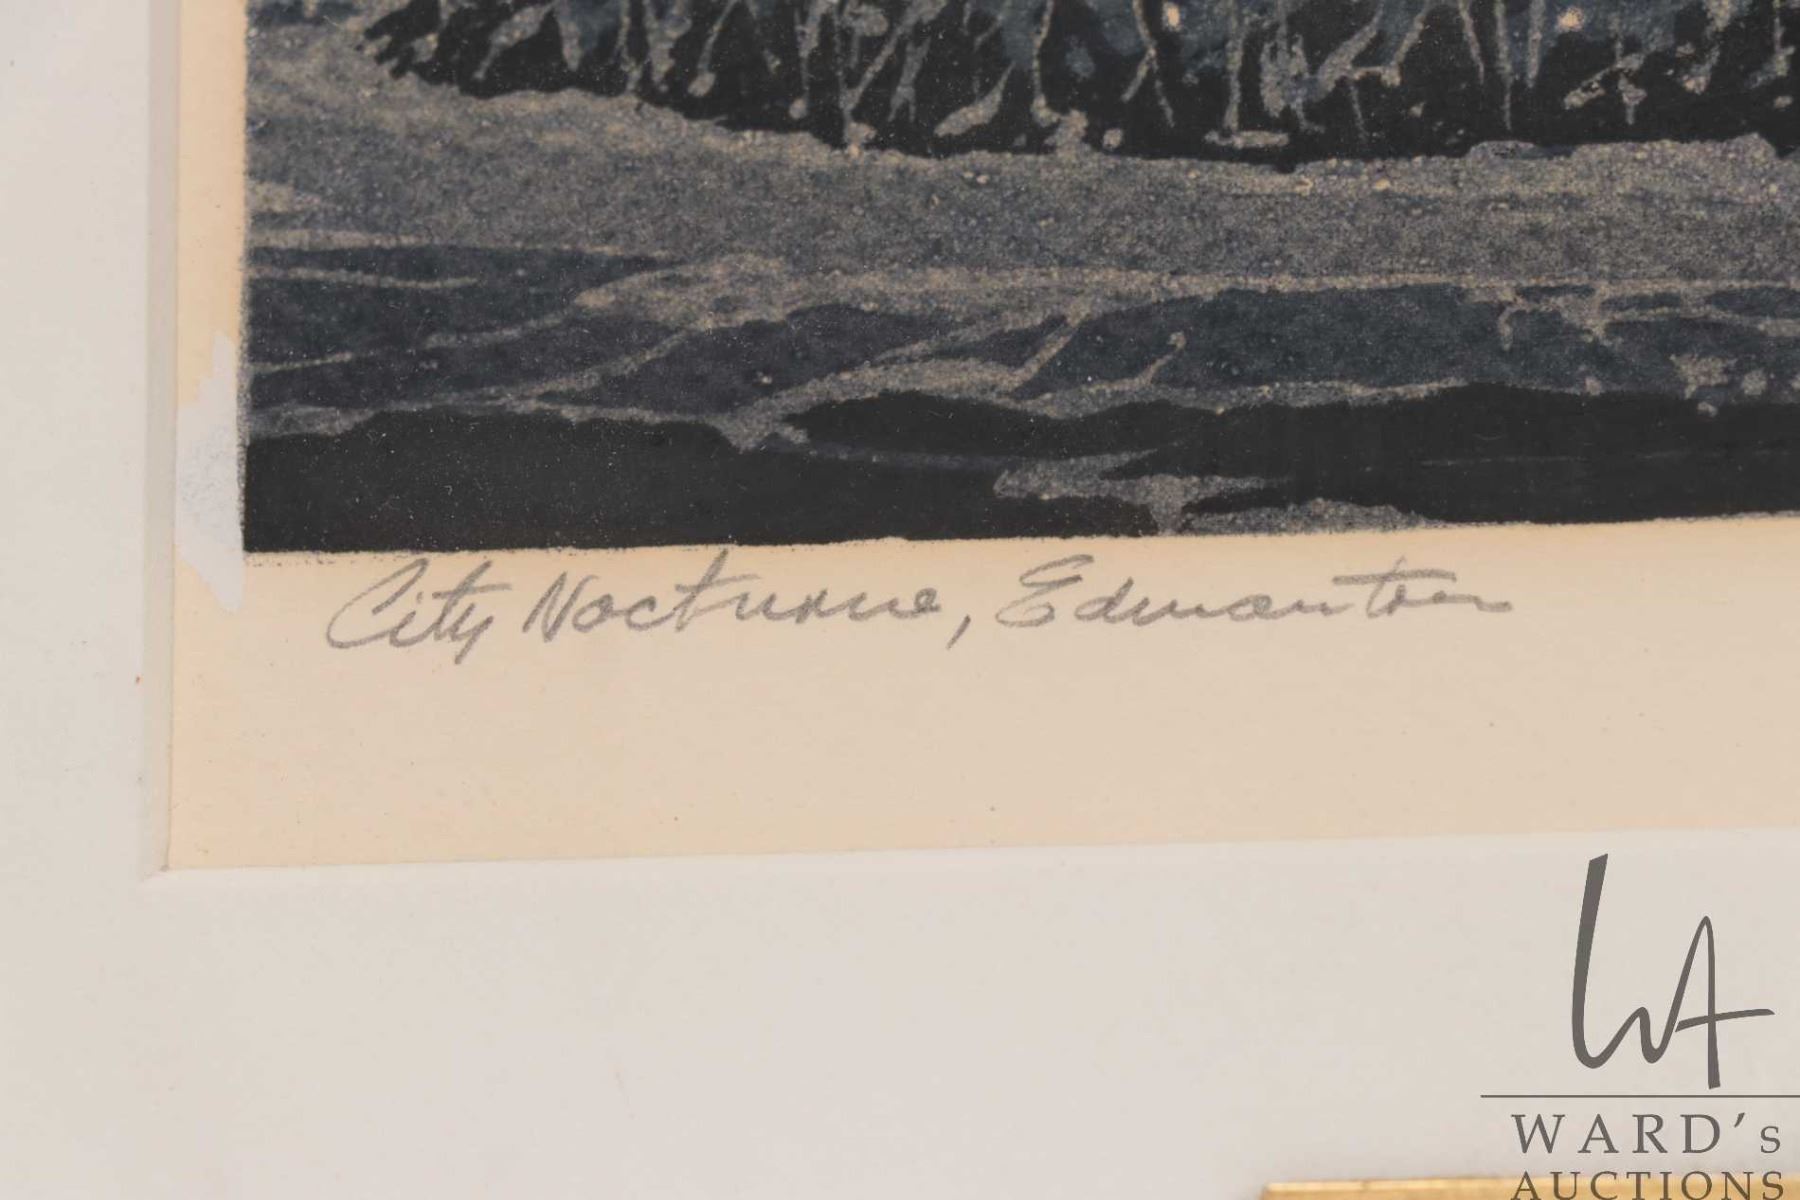 City Nocturne, Edmonton
WA
WARD's
AUCTIONS